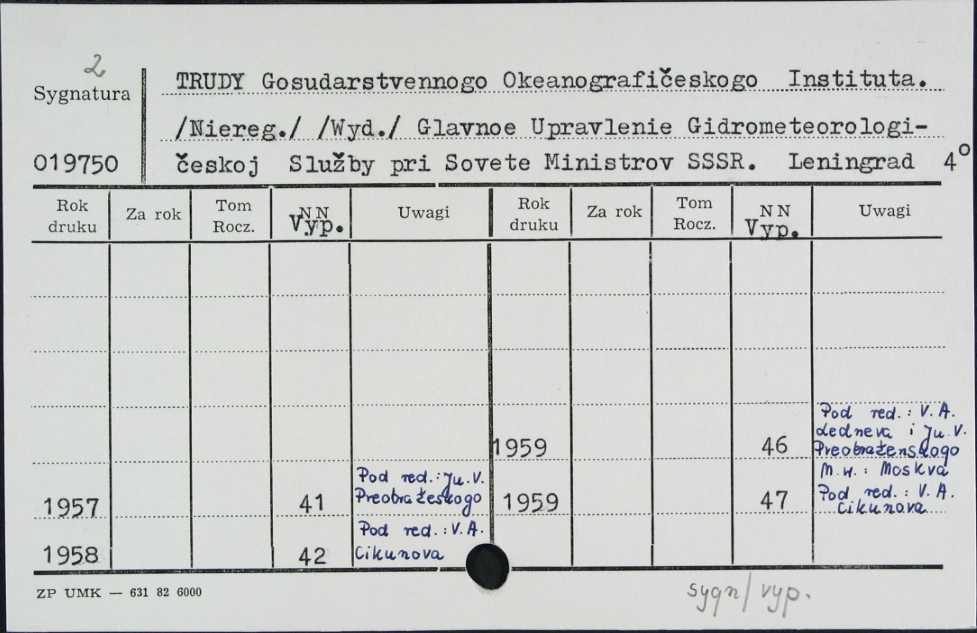 2
Sygnatura
019750
TRUDY Gosudarstvennogo Okeanografičeskogo Instituta.
/Niereg./ /Wyd./ Glavnoe Upravlenie Gidrometeorologi-
českoj Služby pri Sovete Ministrov SSSR. Leningrad 4°
Rok druku Za rok Tom Rocz. NN Vyp. Uwagi Rok druku Za rok Tom Rocz. NN Vyp. Uwagi
1957 41 Pod red.: Ju. V.
Preobražeskogo
1958 42 Pod red.: V. A.
Cikunova
1959 46 Pod red.: V. A.
Ledneva i Ju. V.
Preobraženskogo
M. w.: Moskva
1959 47 Pod red.: V. A.
Cikunova
ZP UMK — 631 82 6000
sygn/vyp.